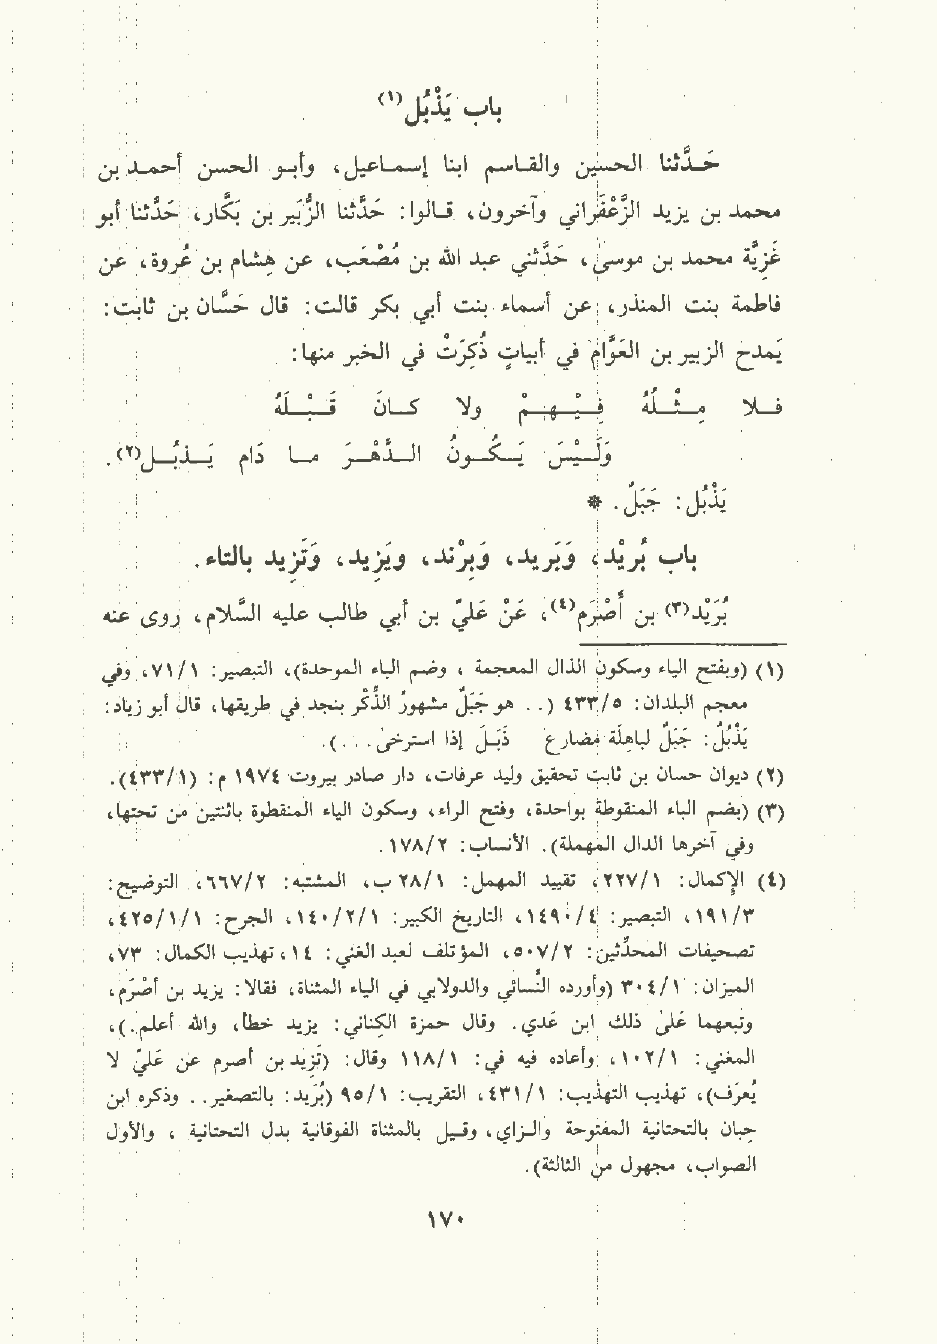 باب يَذْبُل(١)
حَدَّثنا الحسين والقاسم ابنا إسماعيل، وأبو الحسن أحمد بن
محمد بن يزيد الزَّعْفَراني وآخرون، قالوا: حَدَّثنا الزُّبَير بن بَكَّار، حَدَّثنا أبو
غَزِيَّة محمد بن موسىٰ، حَدَّثني عبد الله بن مُصْعَب، عن هِشام بن عُروة، عن
فاطمة بنت المنذر، عن أسماء بنت أبي بكر قالت: قال حَسَّان بن ثابت:
يَمدح الزبير بن العَوَّام في أبياتٍ ذُكِرَتْ في الخبر منها:
فلا مِثْلُهُ فِيْهِمْ ولا كانَ قَبْلَهُ
وَلَيْسَ يَكُونُ الدَّهْرَ ما دَام يَذبُل(٢).
يَذْبُل: جَبَلٌ. *
باب بُرَيْد، وَبَرِيد، وَبِرْند، ويَزِيد، وَتَزِيد بالتاء.
بُرَيْد(٣) بن أَصْرَم(٤)، عَنْ عَليِّ بن أبي طالب عليه السَّلام، روى عنه
(١) (وبفتح الياء وسكون الذال المعجمة ، وضم الباء الموحدة)، التبصير: ٧١/١، وفي
معجم البلدان: ٤٣٣/٥ (.. هو جَبَلٌ مشهورُ الذِّكْر بنجد في طريقها، قال أبو زياد:
يَذْبُلُ: جَبَلٌ لباهِلَة مضارع ذَبَلَ إذا استرخىٰ...).
(٢) ديوان حسان بن ثابت تحقيق وليد عرفات، دار صادر بيروت ١٩٧٤ م: (٤٣٣/١).
(٣) (بضم الباء المنقوطة بواحدة، وفتح الراء، وسكون الياء المنقطوة باثنتين من تحتها،
وفي آخرها الدال المهملة). الأنساب: ١٧٨/٢.
(٤) الإكمال: ٢٢٧/١، تقييد المهمل: ٢٨/١ ب، المشتبه: ٦٦٧/٢، التوضيح:
١٩١/٣، التبصير: ١٤٩٠/٤، التاريخ الكبير: ١٤٠/٢/١، الجرح: ٤٢٥/١/١،
تصحيفات المحدِّثين: ٥٠٧/٢، المؤتلف لعبد الغني: ١٤، تهذيب الكمال: ٧٣،
الميزان: ٣٠٤/١ (وأورده النَّسائي والدولابي في الياء المثناة، فقالا: يزيد بن أصْرَم،
وتبعهما عَلىٰ ذلك ابن عَدي. وقال حمزة الكِناني: يزيد خطأ، والله أعلم.)،
المغني: ١٠٢/١، وأعاده فيه في: ١١٨/١ وقال: (تَزِيد بن أصرم عن عَليّ لا
يُعرَف)، تهذيب التهذيب: ٤٣١/١، التقريب: ٩٥/١ (بُرَيد: بالتصغير.. وذكره ابن
حِبان بالتحتانية المفتوحة والزاي، وقيل بالمثناة الفوقانية بدل التحتانية ، والأول
الصواب، مجهول من الثالثة).
١٧٠